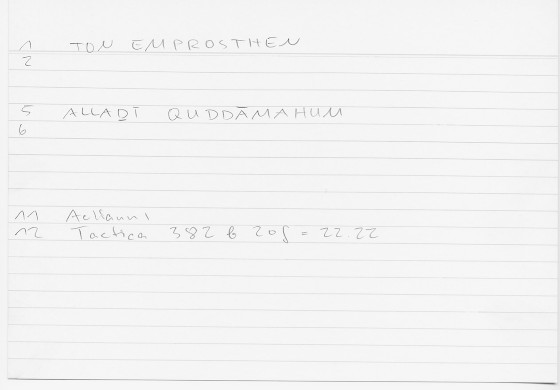 1 TON EMPROSTHEN
2
5 ALLAḎĪ QUDDĀMAHUM
6
11 Aelianni
12 Tactica 382 b 20f = 22 22